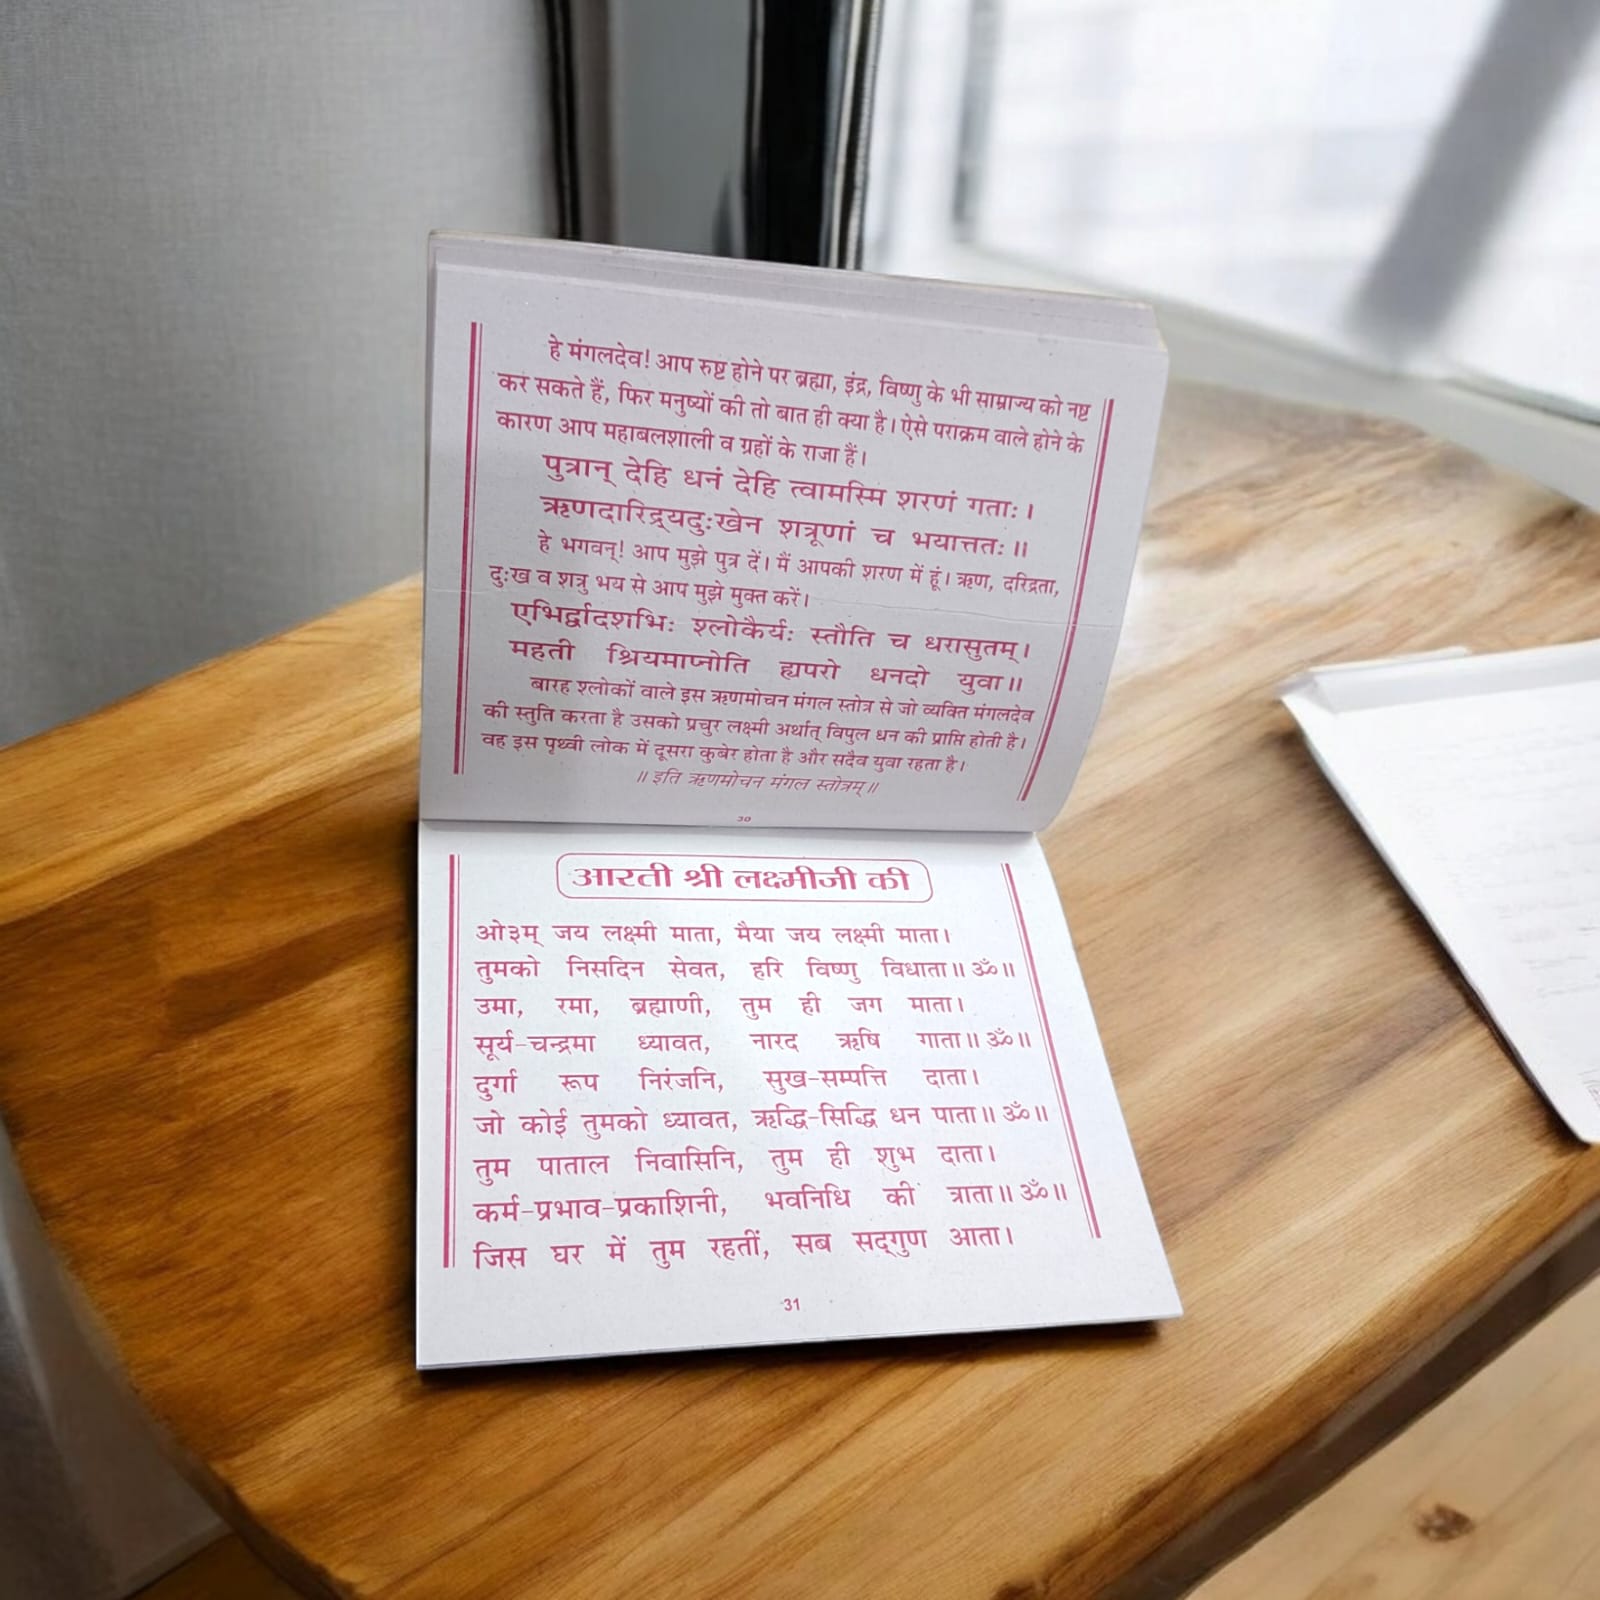 हे मंगलदेव! आप रुष्ट होने पर ब्रह्मा, इंद्र, विष्णु के भी साम्राज्य को नष्ट
कर सकते हैं, फिर मनुष्यों की तो बात ही क्या है। ऐसे पराक्रम वाले होने के
कारण आप महाबलशाली व ग्रहों के राजा हैं।
पुत्रान् देहि धनं देहि त्वामस्मि शरणं गताः।
ऋणदारिद्र्यदुःखेन शत्रूणां च भयात्ततः॥
हे भगवन्! आप मुझे पुत्र दें। मैं आपकी शरण में हूं। ऋण, दरिद्रता,
दुःख व शत्रु भय से आप मुझे मुक्त करें।
एभिर्द्वादशभिः श्लोकैर्यः स्तौति च धरासुतम्।
महती श्रियमाप्नोति ह्यपरो धनदो युवा॥
बारह श्लोकों वाले इस ऋणमोचन मंगल स्तोत्र से जो व्यक्ति मंगलदेव
की स्तुति करता है उसको प्रचुर लक्ष्मी अर्थात् विपुल धन की प्राप्ति होती है।
वह इस पृथ्वी लोक में दूसरा कुबेर होता है और सदैव युवा रहता है।
॥ इति ऋणमोचन मंगल स्तोत्रम्॥
30
आरती श्री लक्ष्मीजी की
ओ३म् जय लक्ष्मी माता, मैया जय लक्ष्मी माता।
तुमको निसदिन सेवत, हरि विष्णु विधाता॥ ॐ॥
उमा, रमा, ब्रह्माणी, तुम ही जग माता।
सूर्य-चन्द्रमा ध्यावत, नारद ऋषि गाता॥ ॐ॥
दुर्गा रूप निरंजनि, सुख-सम्पत्ति दाता।
जो कोई तुमको ध्यावत, ऋद्धि-सिद्धि धन पाता॥ ॐ॥
तुम पाताल निवासिनि, तुम ही शुभ दाता।
कर्म-प्रभाव-प्रकाशिनी, भवनिधि की त्राता॥ ॐ॥
जिस घर में तुम रहतीं, सब सद्‌गुण आता।
31